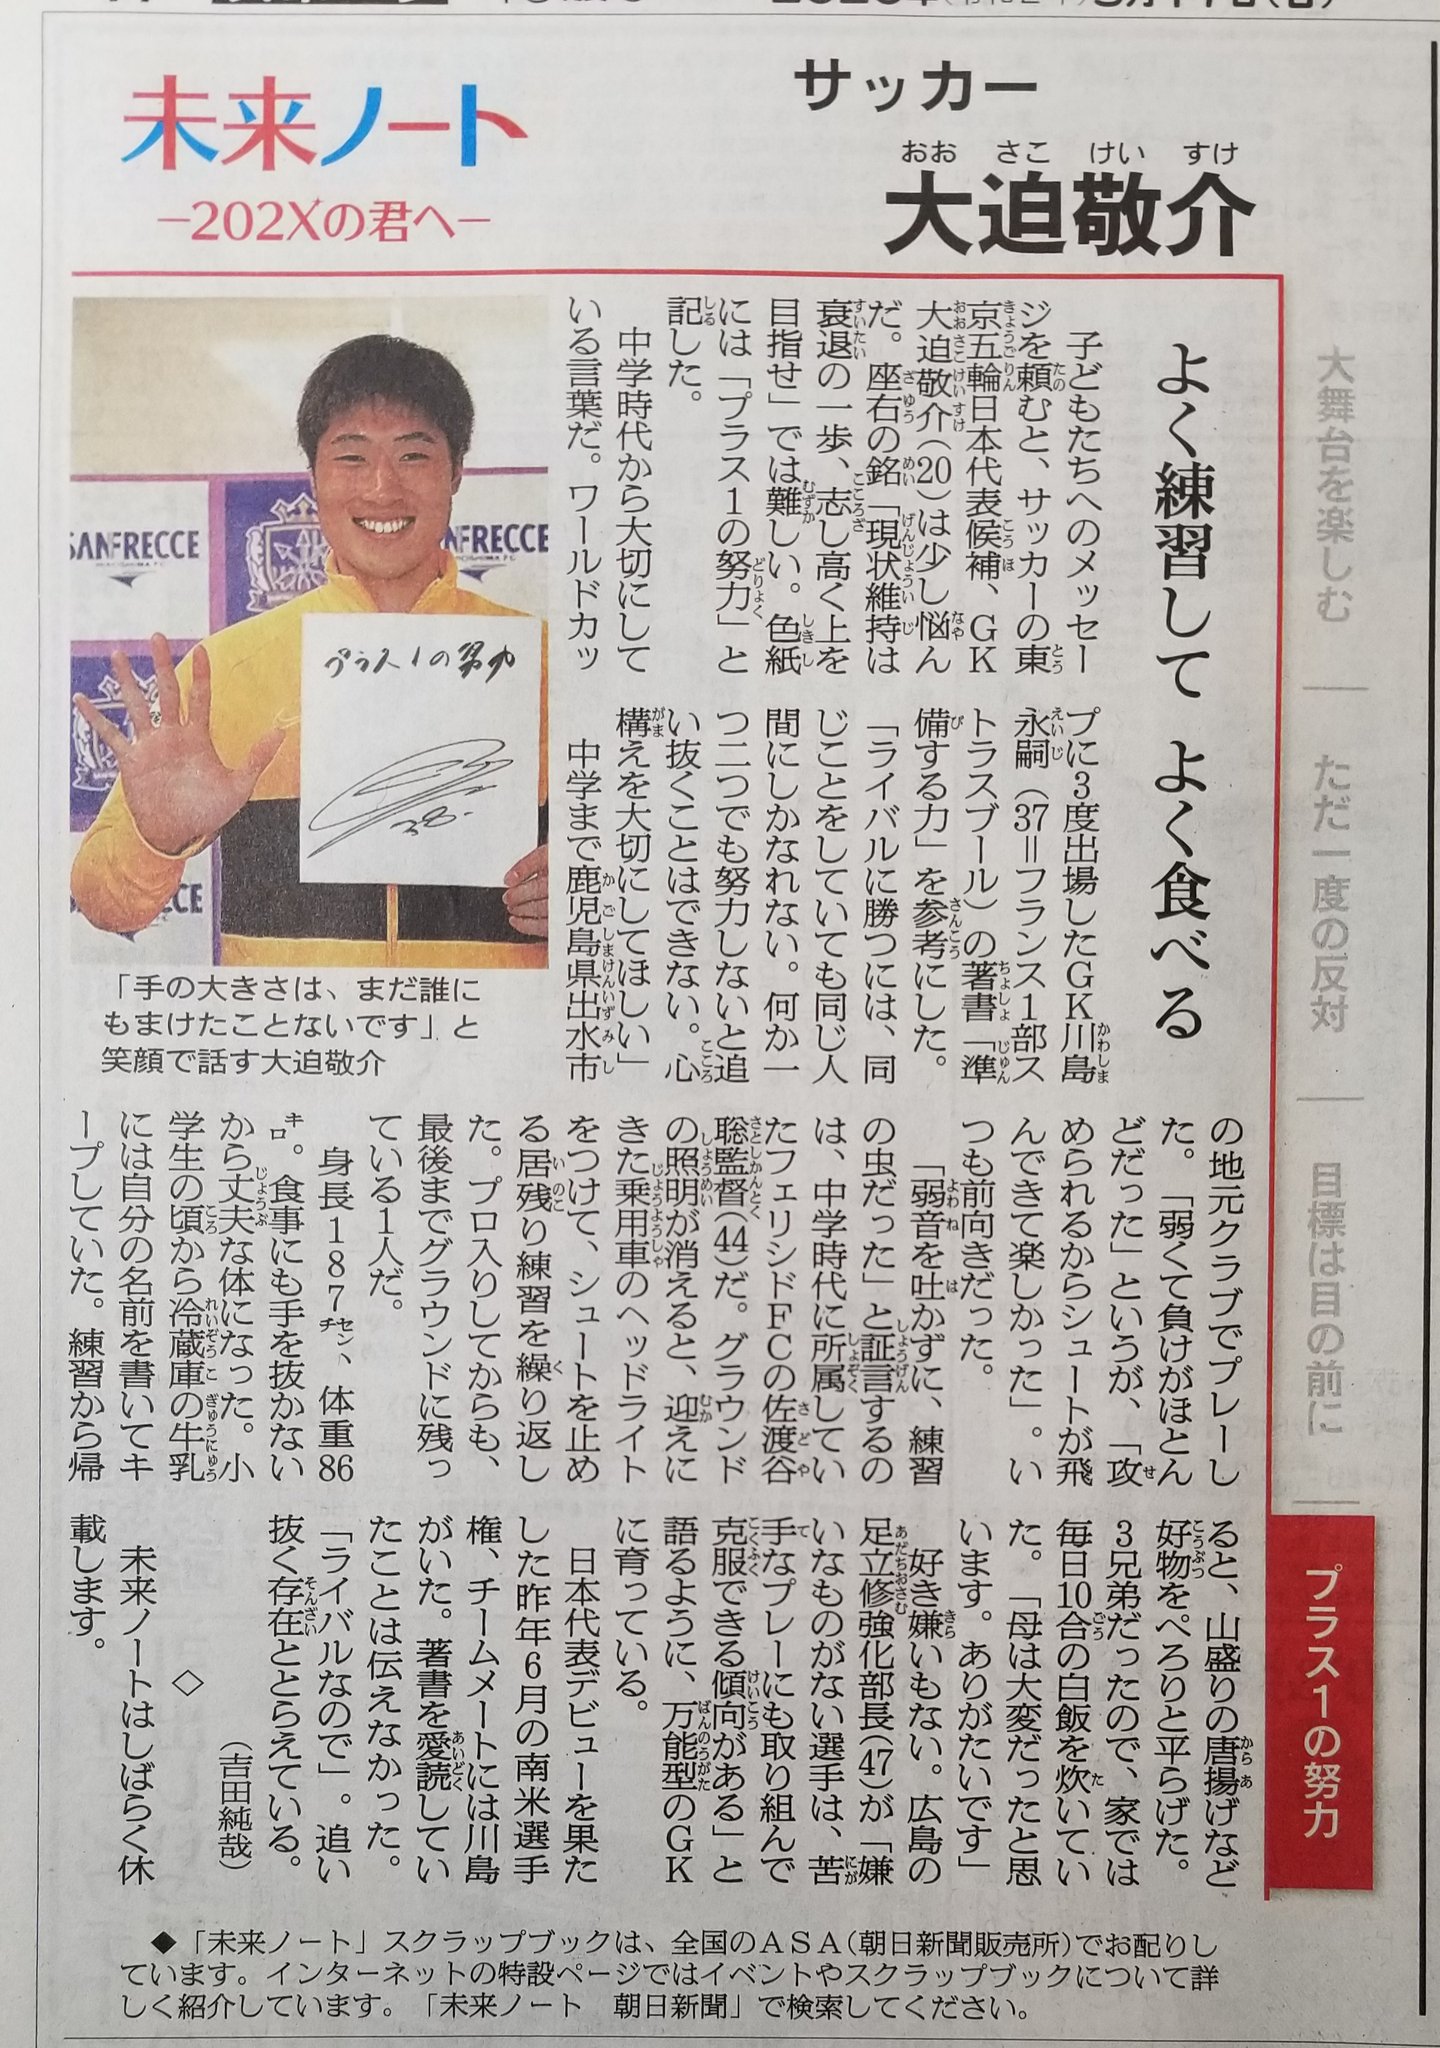 未来ノート
－202Xの君へ－
サッカー
おお さこ けい すけ
大迫敬介
大舞台を楽しむ
ただ一度の反対
目標は目の前に
プラス1の努力
よく練習して よく食べる
子どもたちへのメッセー
ジを頼むと、サッカーの東
京五輪日本代表候補、GK
大迫敬介(20)は少し悩ん
だ。座右の銘「現状維持は
衰退の一歩、志し高く上を
目指せ」では難しい。色紙
には「プラス1の努力」と
記した。
中学時代から大切にして
いる言葉だ。ワールドカッ
プに3度出場したGK川島
永嗣(37＝フランス1部ス
トラスブール)の著書「準
備する力」を参考にした。
「ライバルに勝つには、同
じことをしていても同じ人
間にしかなれない。何か一
つ二つでも努力しないと追
い抜くことはできない。心
構えを大切にしてほしい」
中学まで鹿児島県出水市
の地元クラブでプレーし
た。「弱くて負けがほとん
どだった」というが、「攻
められるからシュートが飛
んできて楽しかった」。い
つも前向きだった。
「弱音を吐かずに、練習
の虫だった」と証言するの
は、中学時代に所属してい
たフェリシドFCの佐渡谷
聡監督(44)だ。グラウンド
の照明が消えると、迎えに
きた乗用車のヘッドライト
をつけて、シュートを止め
る居残り練習を繰り返し
た。プロ入りしてからも、
最後までグラウンドに残っ
ている1人だ。
身長187センチ、体重86
キロ。食事にも手を抜かない
から丈夫な体になった。小
学生の頃から冷蔵庫の牛乳
には自分の名前を書いてキ
ープしていた。練習から帰
ると、山盛りの唐揚げなど
好物をぺろりと平らげた。
3兄弟だったので、家では
毎日10合の白飯を炊いてい
た。「母は大変だったと思
います。ありがたいです」
好き嫌いもない。広島の
足立修強化部長(47)が「嫌
いなものがない選手は、苦
手なプレーにも取り組んで
克服できる傾向がある」と
語るように、万能型のGK
に育っている。
日本代表デビューを果た
した昨年6月の南米選手
権、チームメートには川島
がいた。著書を愛読してい
たことは伝えなかった。
「ライバルなので」。追い
抜く存在ととらえている。
(吉田純哉)
◇
未来ノートはしばらく休
載します。
SANFRECCE
ANFRECCE
プラス1の努力
38.
「手の大きさは、まだ誰に
もまけたことないです」と
笑顔で話す大迫敬介
◆「未来ノート」スクラップブックは、全国のASA(朝日新聞販売所)でお配りし
ています。インターネットの特設ページではイベントやスクラップブックについて詳
しく紹介しています。「未来ノート 朝日新聞」で検索してください。